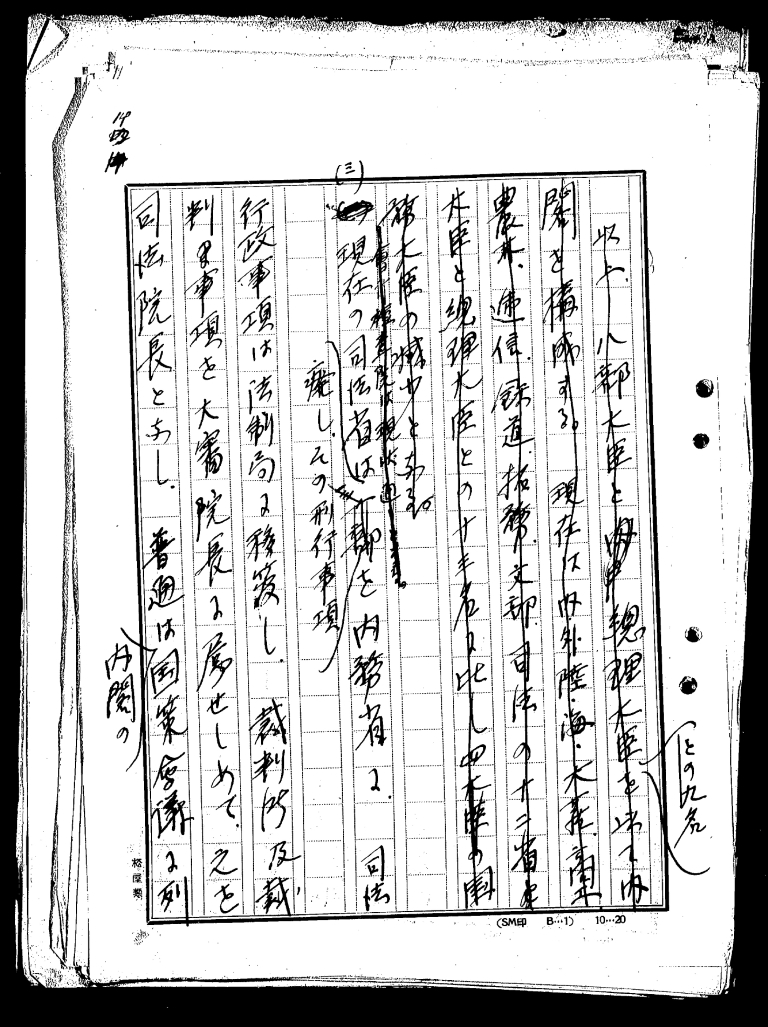 以上、八部大臣と内中総理大臣を以て内
(との九名
閣を構成する。現在は内外陸・海・大蔵、商工
農林、逓信、鉄道、拓務、文部、司法の十二省
大臣と総理大臣との十三名に比し四大臣の
大臣の減少となる。
會計検査院は現状通
(三)
現在の司法省は一部を内務省に、司法
廃し、その刑行事項
行政事項は法制局に移管し、裁判所及裁
判事項を大審院長に属せしめて、之を
司法院長となし、普通は国策会議に列
内閣の
(SM印 B…1) 10…20